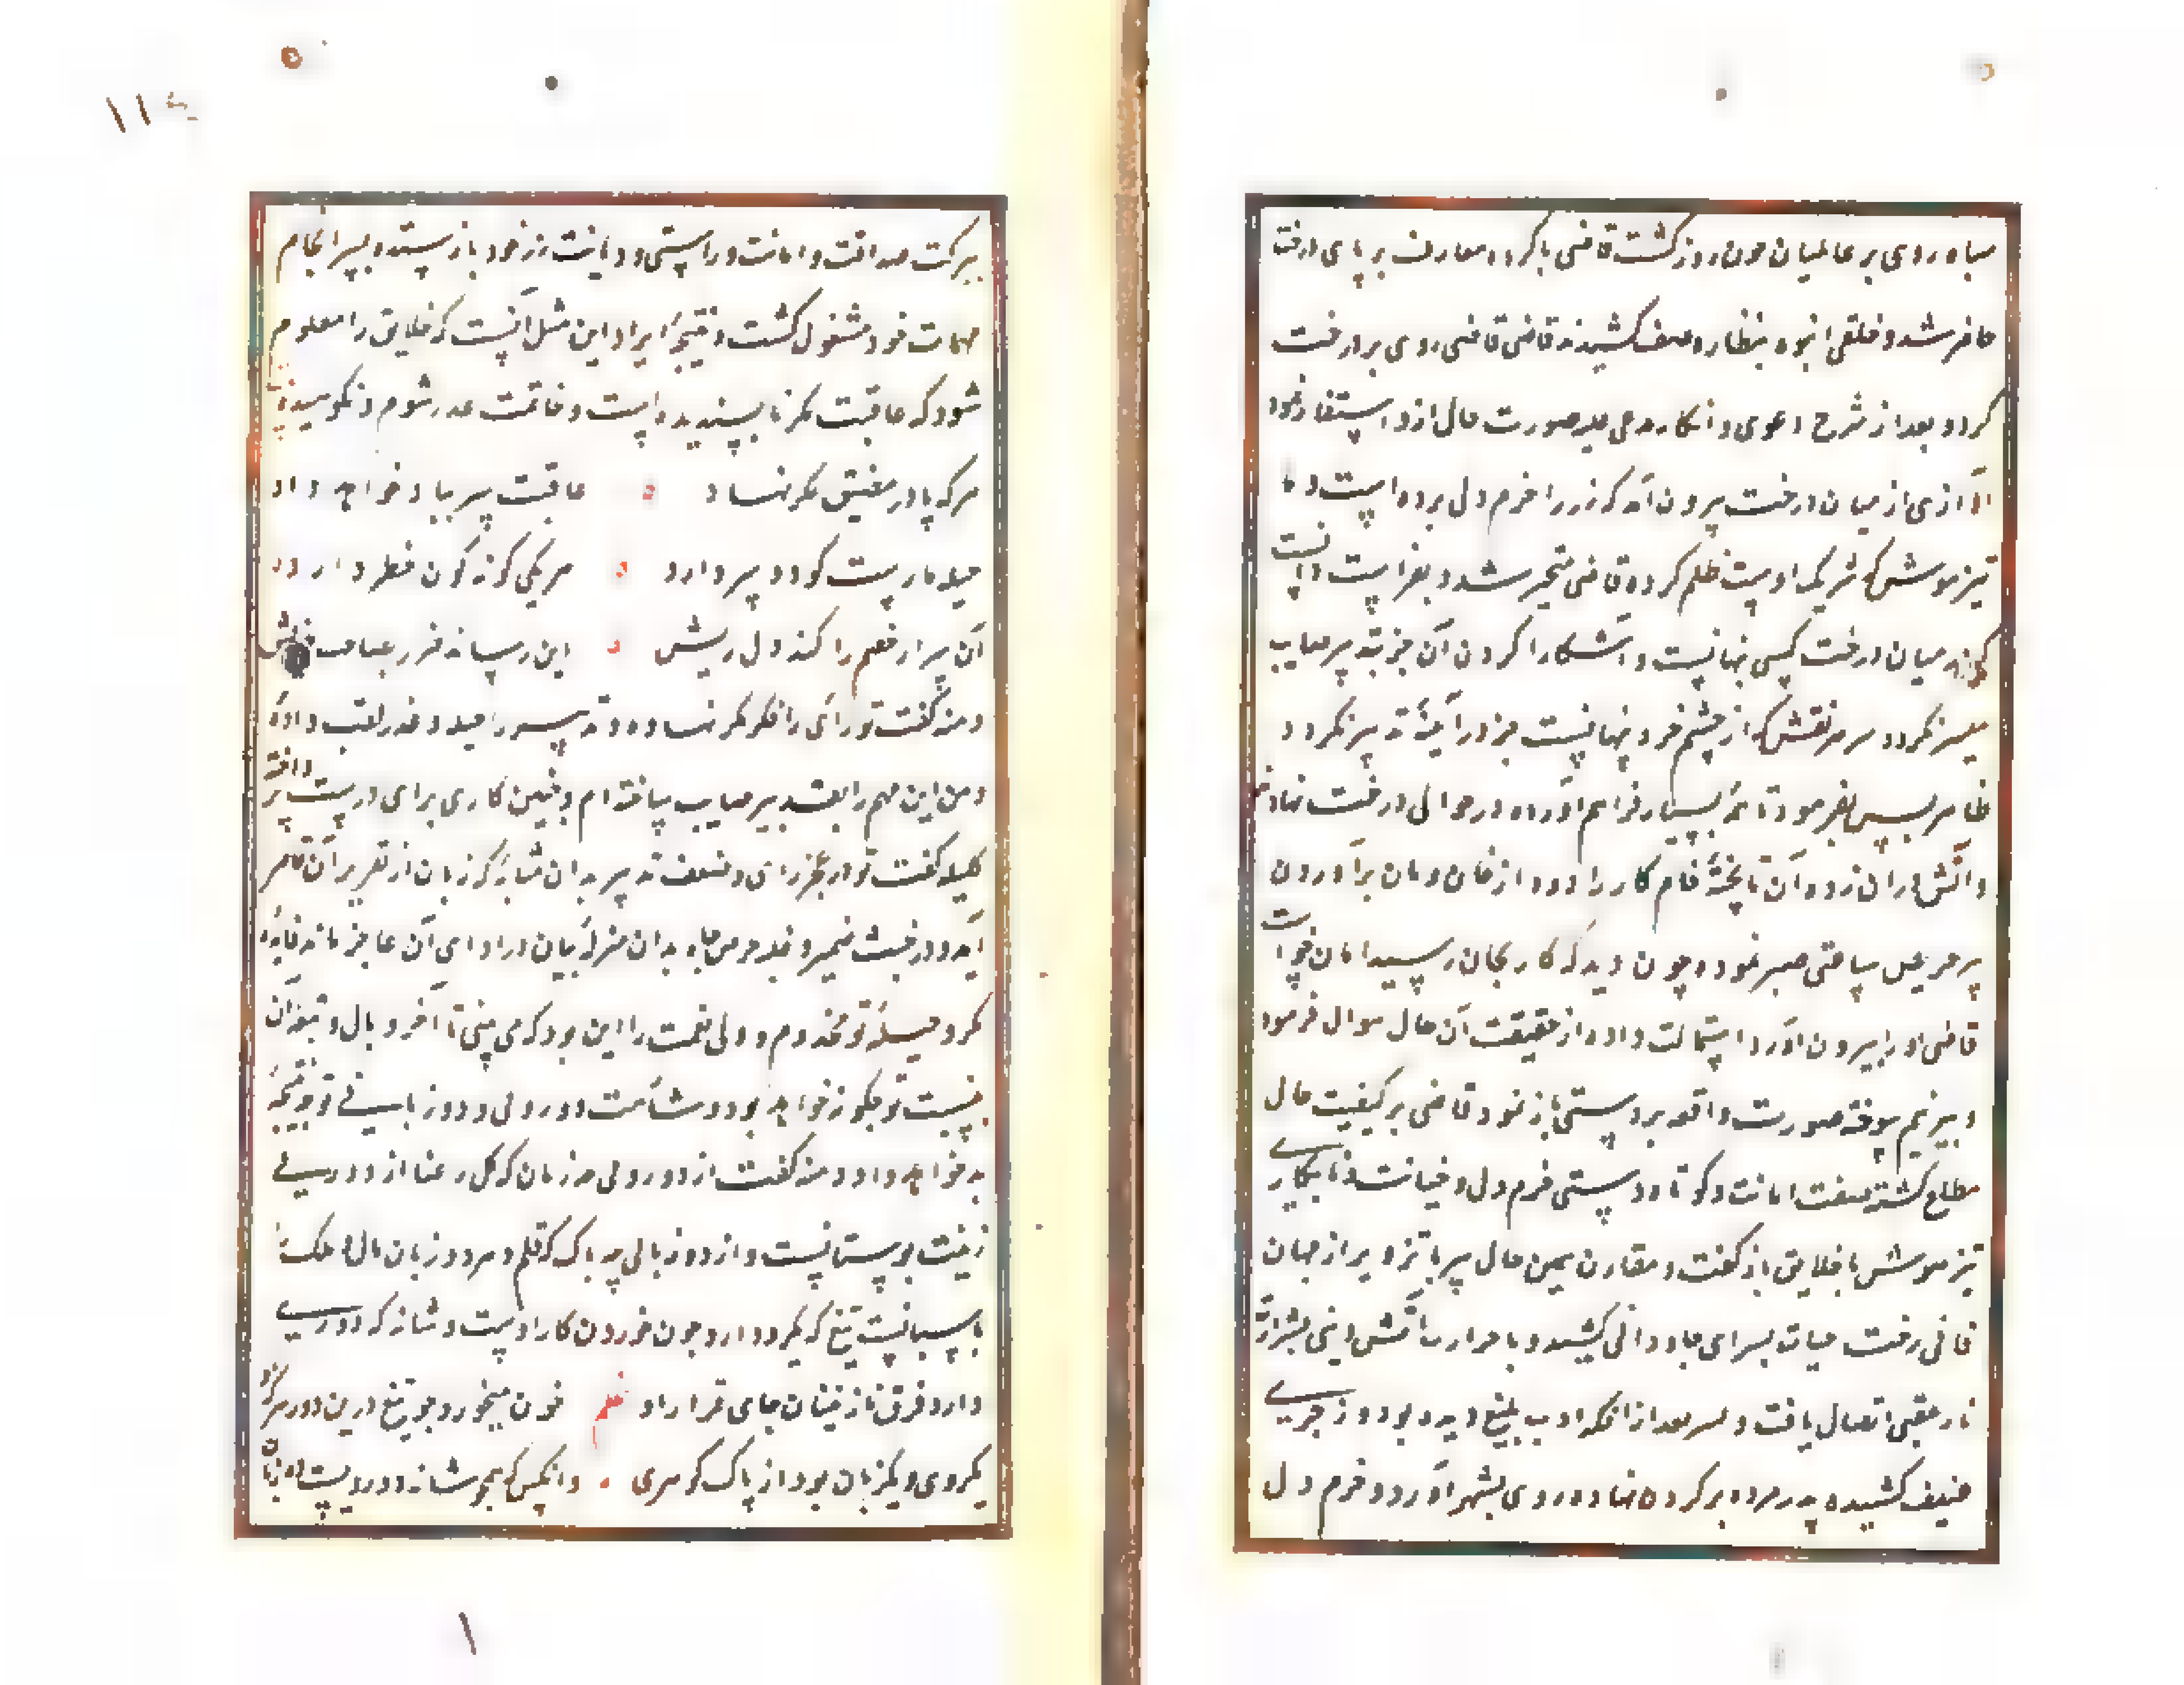 سیاه روی بر عالمیان چون روز گشت قاضی با گروه معارف بر پای درخت
حاضر شد و خلقی انبوه بنظاره صف کشیدند قاضی روی بدرخت
کرد و بعد از شرح دعوی و انکار مدعی علیه صورت حال ازو استفسار نمود
آوازی از میان درخت بیرون آمد که زر را خرم دل برده است و با
تیزهوش که شریک اوست ظلم کرده قاضی متحیر شد و بفراست دانست
که در میان درخت کسی پنهانست و آشکارا کردن آن جز بتدبیر صایب
میسر نگردد هر نقش که از چشم خرد پنهانیست جز در آینهٔ تدبیر نگردد
ظاهر پس بفرمود تا هیمه بسیار فراهم آورده در حوالی درخت نهادند
و آتش در آن زده و آن ناپخته خام کار را دود از خان و مان برآوردن
پیر حریص ساعتی صبر نمود و چون دید که کار بجان رسید امان خواست
قاضی او را بیرون آورد استمالت داد و از حقیقت آن حال سوال فرمود
و پیر نیم سوخته صورت واقعه بدرستی باز نمود قاضی بر کیفیت حال
مطلع گشته صفت امانت و کوتاه دستی خرم دل و خیانت و نابکاری
تیزهوش با خلایق باز گفت و مقارن همین حال پیر با تزویر از جهان
فانی رخت حیات بسرای جاودانی کشید و با حرارت آتش دنیی بشرارت
نار عقبی اتصال یافت و پسر بعد از آنکه ادب بلیغ دیده بود و زجری
عنیف کشیده پدر مرده بر گردن نهاده روی بشهر آورد و خرم دل
ببرکت صداقت و امانت و راستی و دیانت زر خود باز ستد و بسرانجام
مهمات خود مشغول گشت و نتیجهٔ ایراد این مثل آنست که خلایق را معلوم
شود که عاقبت مکر ناپسندیده است و خاتمت غدر شوم و نکوهیده
هر که پا در مضیق مکر نهاد عاقبت سر بباد خواهد داد
حیله ماریست کو دو سر دارد هر یکی گونه گون خطر دارد
آن سر ار خصم را کند دل ریش این رساند ضرر بصاحب خویش
دمنه گفت تو رای را فکر مکر نهاده و تدبیر را حیله و غدر لقب داده
و من این مهم را بتدبیر صایب ساخته‌ام و چنین کاری برای درست پرداخته
کلیله گفت تو در عجز رای و ضعف تدبیر بدان مثابه که زبان از تقریر آن قاصر
آید و در خبث ضمیر و غلبه حرص جاه بدان منزله که بیان در ادای آن عاجز ماند فایده
مکر و حیله تو مخدوم و ولی نعمت را این بود که می بینی تا آخر وبال و تبعه آن
نسبت تو چگونه خواهد بود و شآمت دورویی و دوزبانی تو چه نتیجه
بد خواهد داد دمنه گفت از دورویی چه زیان که گل رعنا از دورویی
زینت بوستانست و از دو زبانی چه باک که قلم در دو زبان مال و ملک
پاسبانیست تیغ که یکرو دارد چون خوردن کار اوست و شانه که دورویی
دارد فرق نازنینان جای قرار او نظم خون میخورد چو تیغ درین دور هر که او
یکروی و یکزبان بود از پاک گوهری وانکس که همچو شانه دورویست و ده زبان